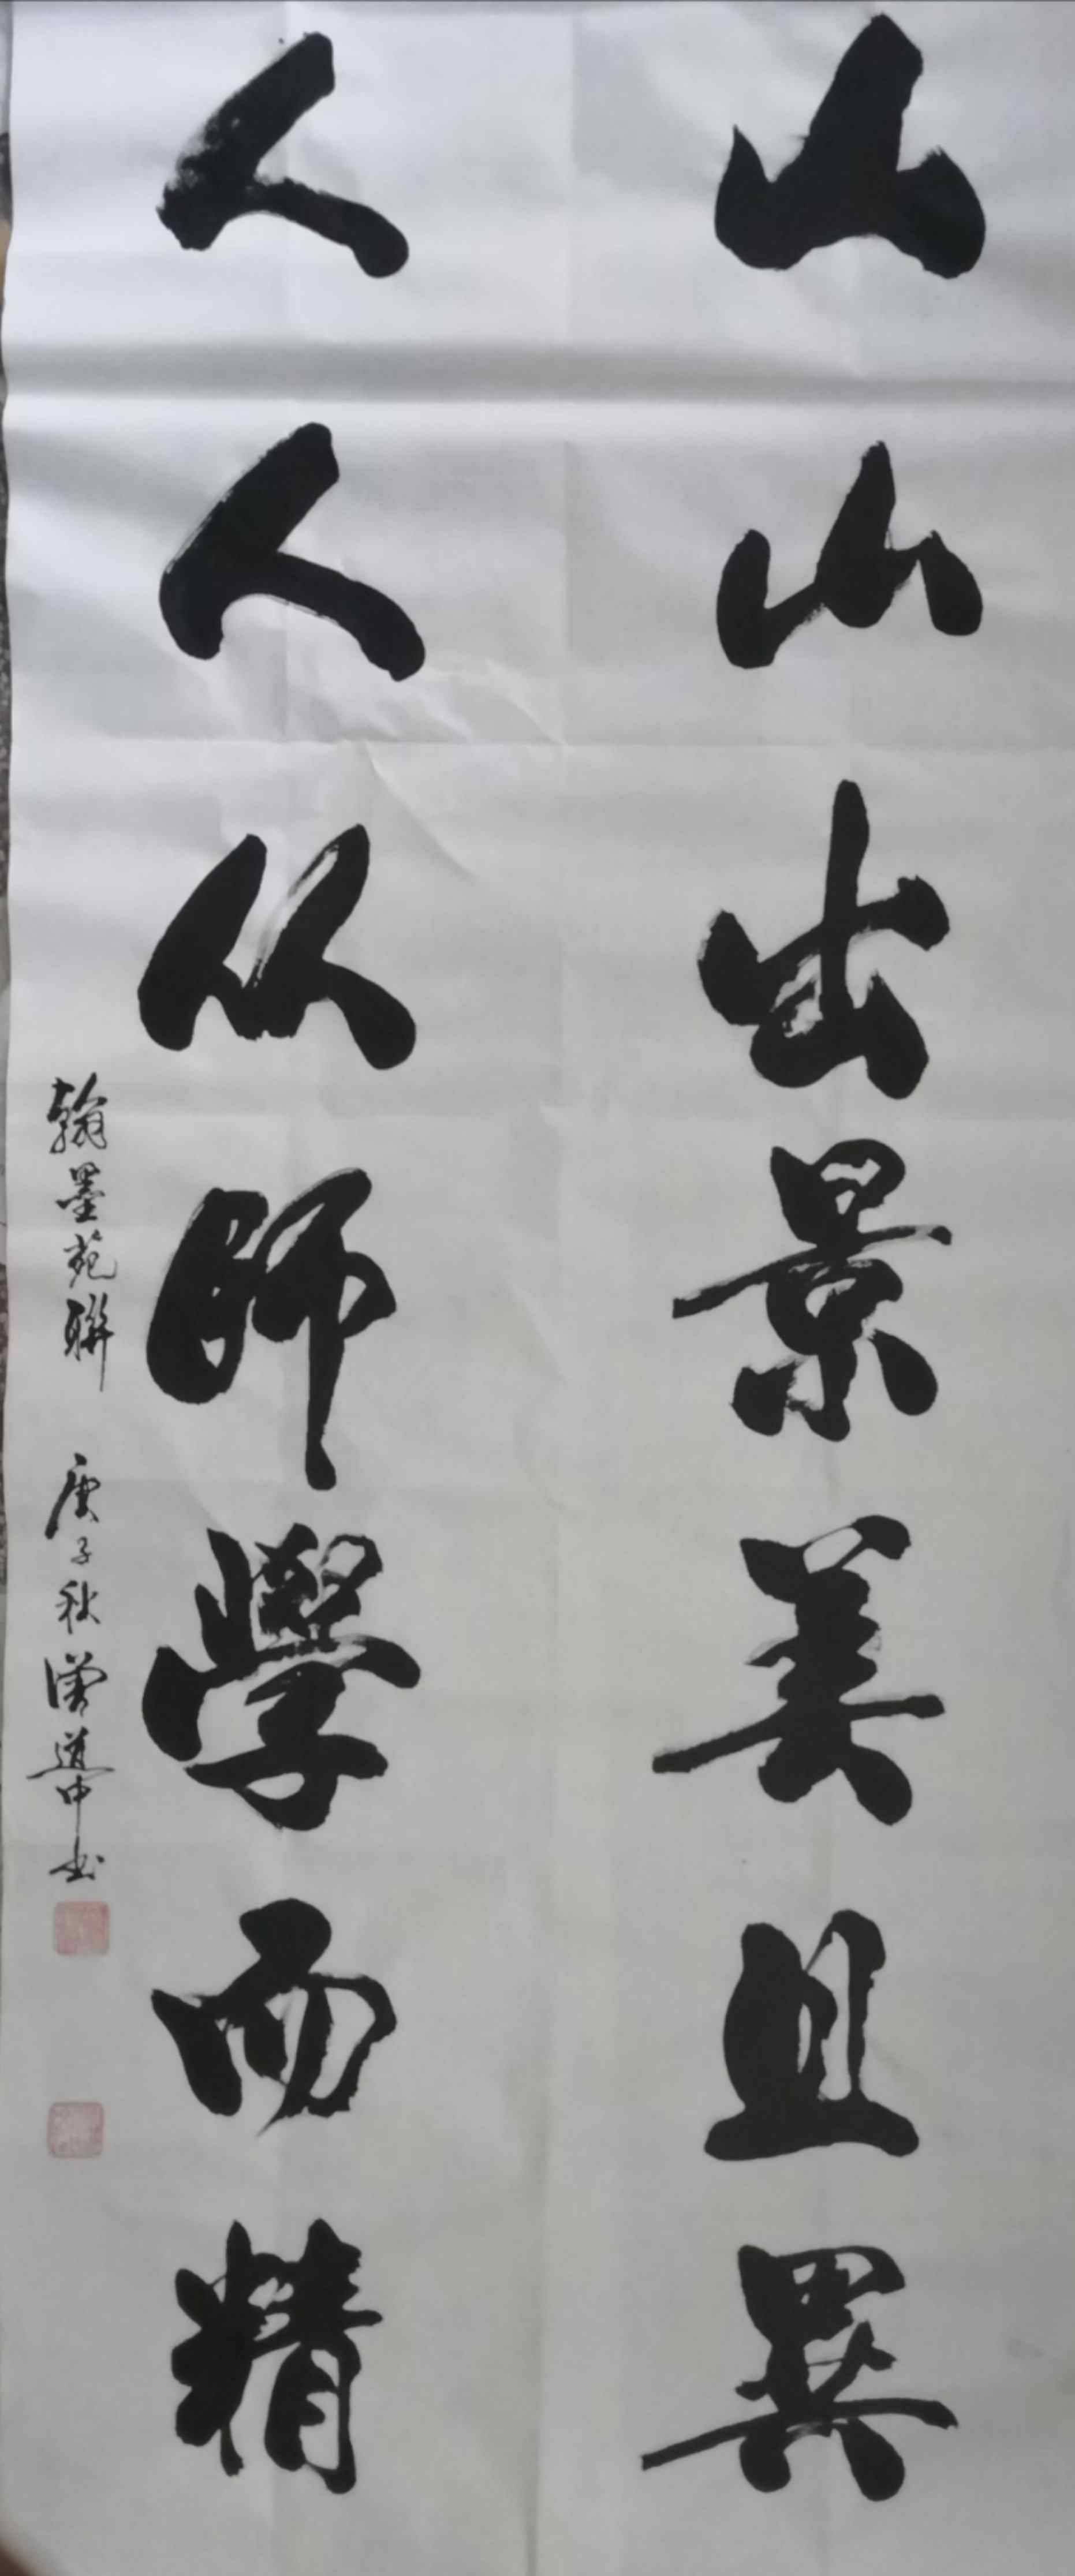 山山出景美且異
人人从師學而精
翰墨苑聯 庚子秋 道中书